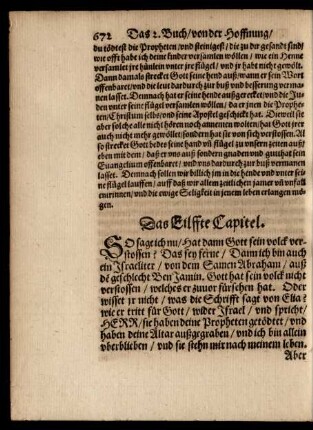 672 Das 2. Buch/ von der Hoffnung/
du tödtest die Propheten/ vnd steinigest/ die zu dir gesandt sind/
wie offt habe ich deine kinder versamlen wöllen/ wie ein Henne
versamlet jre hünlein vnter jre flügel/ vnd jr habt nicht gewölt.
Dann damals strecket Gott seine hend auß/ wann er sein Wort
offenbaret/ vnd die leut dardurch zur buß vnd besserung verma-
nen lasset. Demnach hat er seine hende außgerecket/ vnd die Ju-
den vnter seine flügel versamlen wöllen/ da er jnen die Prophe-
ten/ Christum selbs/ vnd seine Apostel geschickt hat. Dieweil sie
aber solche alle nicht hören noch annemen wolten/ hat Gott jrer
auch nicht mehr gewöllet/ sondern hat sie von sich verstossen. Al
so strecket Gott beides seine hand vñ flügel zu vnsern zeiten auß/
eben mit dem/ daß er vns auß sondern gnaden vnd gunst hat sein
Euangelium offenbaret/ vnd vns dardurch zur buß vermanen
lasset. Demnach sollen wir billich jm in die hende vnd vnter sei-
ne flügel lauffen/ auff daß wir allem zeitlichen jamer vñ vnfall
entrinnen/ vnd die ewige Seligkeit in jenem leben erlangen mö-
gen.
Das Eilffte Capitel.
SO sage ich nu/ Hat dann Gott sein volck ver-
stossen? Das sey ferne/ Dann ich bin auch
ein Israeliter/ von dem Samen Abraham/ auß
dē geschlecht Ben Jamin. Gott hat sein volck nicht
verstossen/ welches er zuuor fürsehen hat. Oder
wisset jr nicht/ was die Schrifft sagt von Elia?
wie er tritt für Gott/ wider Israel/ vnd spricht/
HERR/ sie haben deine Propheten getödtet/ vnd
haben deine Altar außgegraben/ vnd ich bin allein
vberblieben/ vnd sie stehn mir nach meinem leben.
Aber